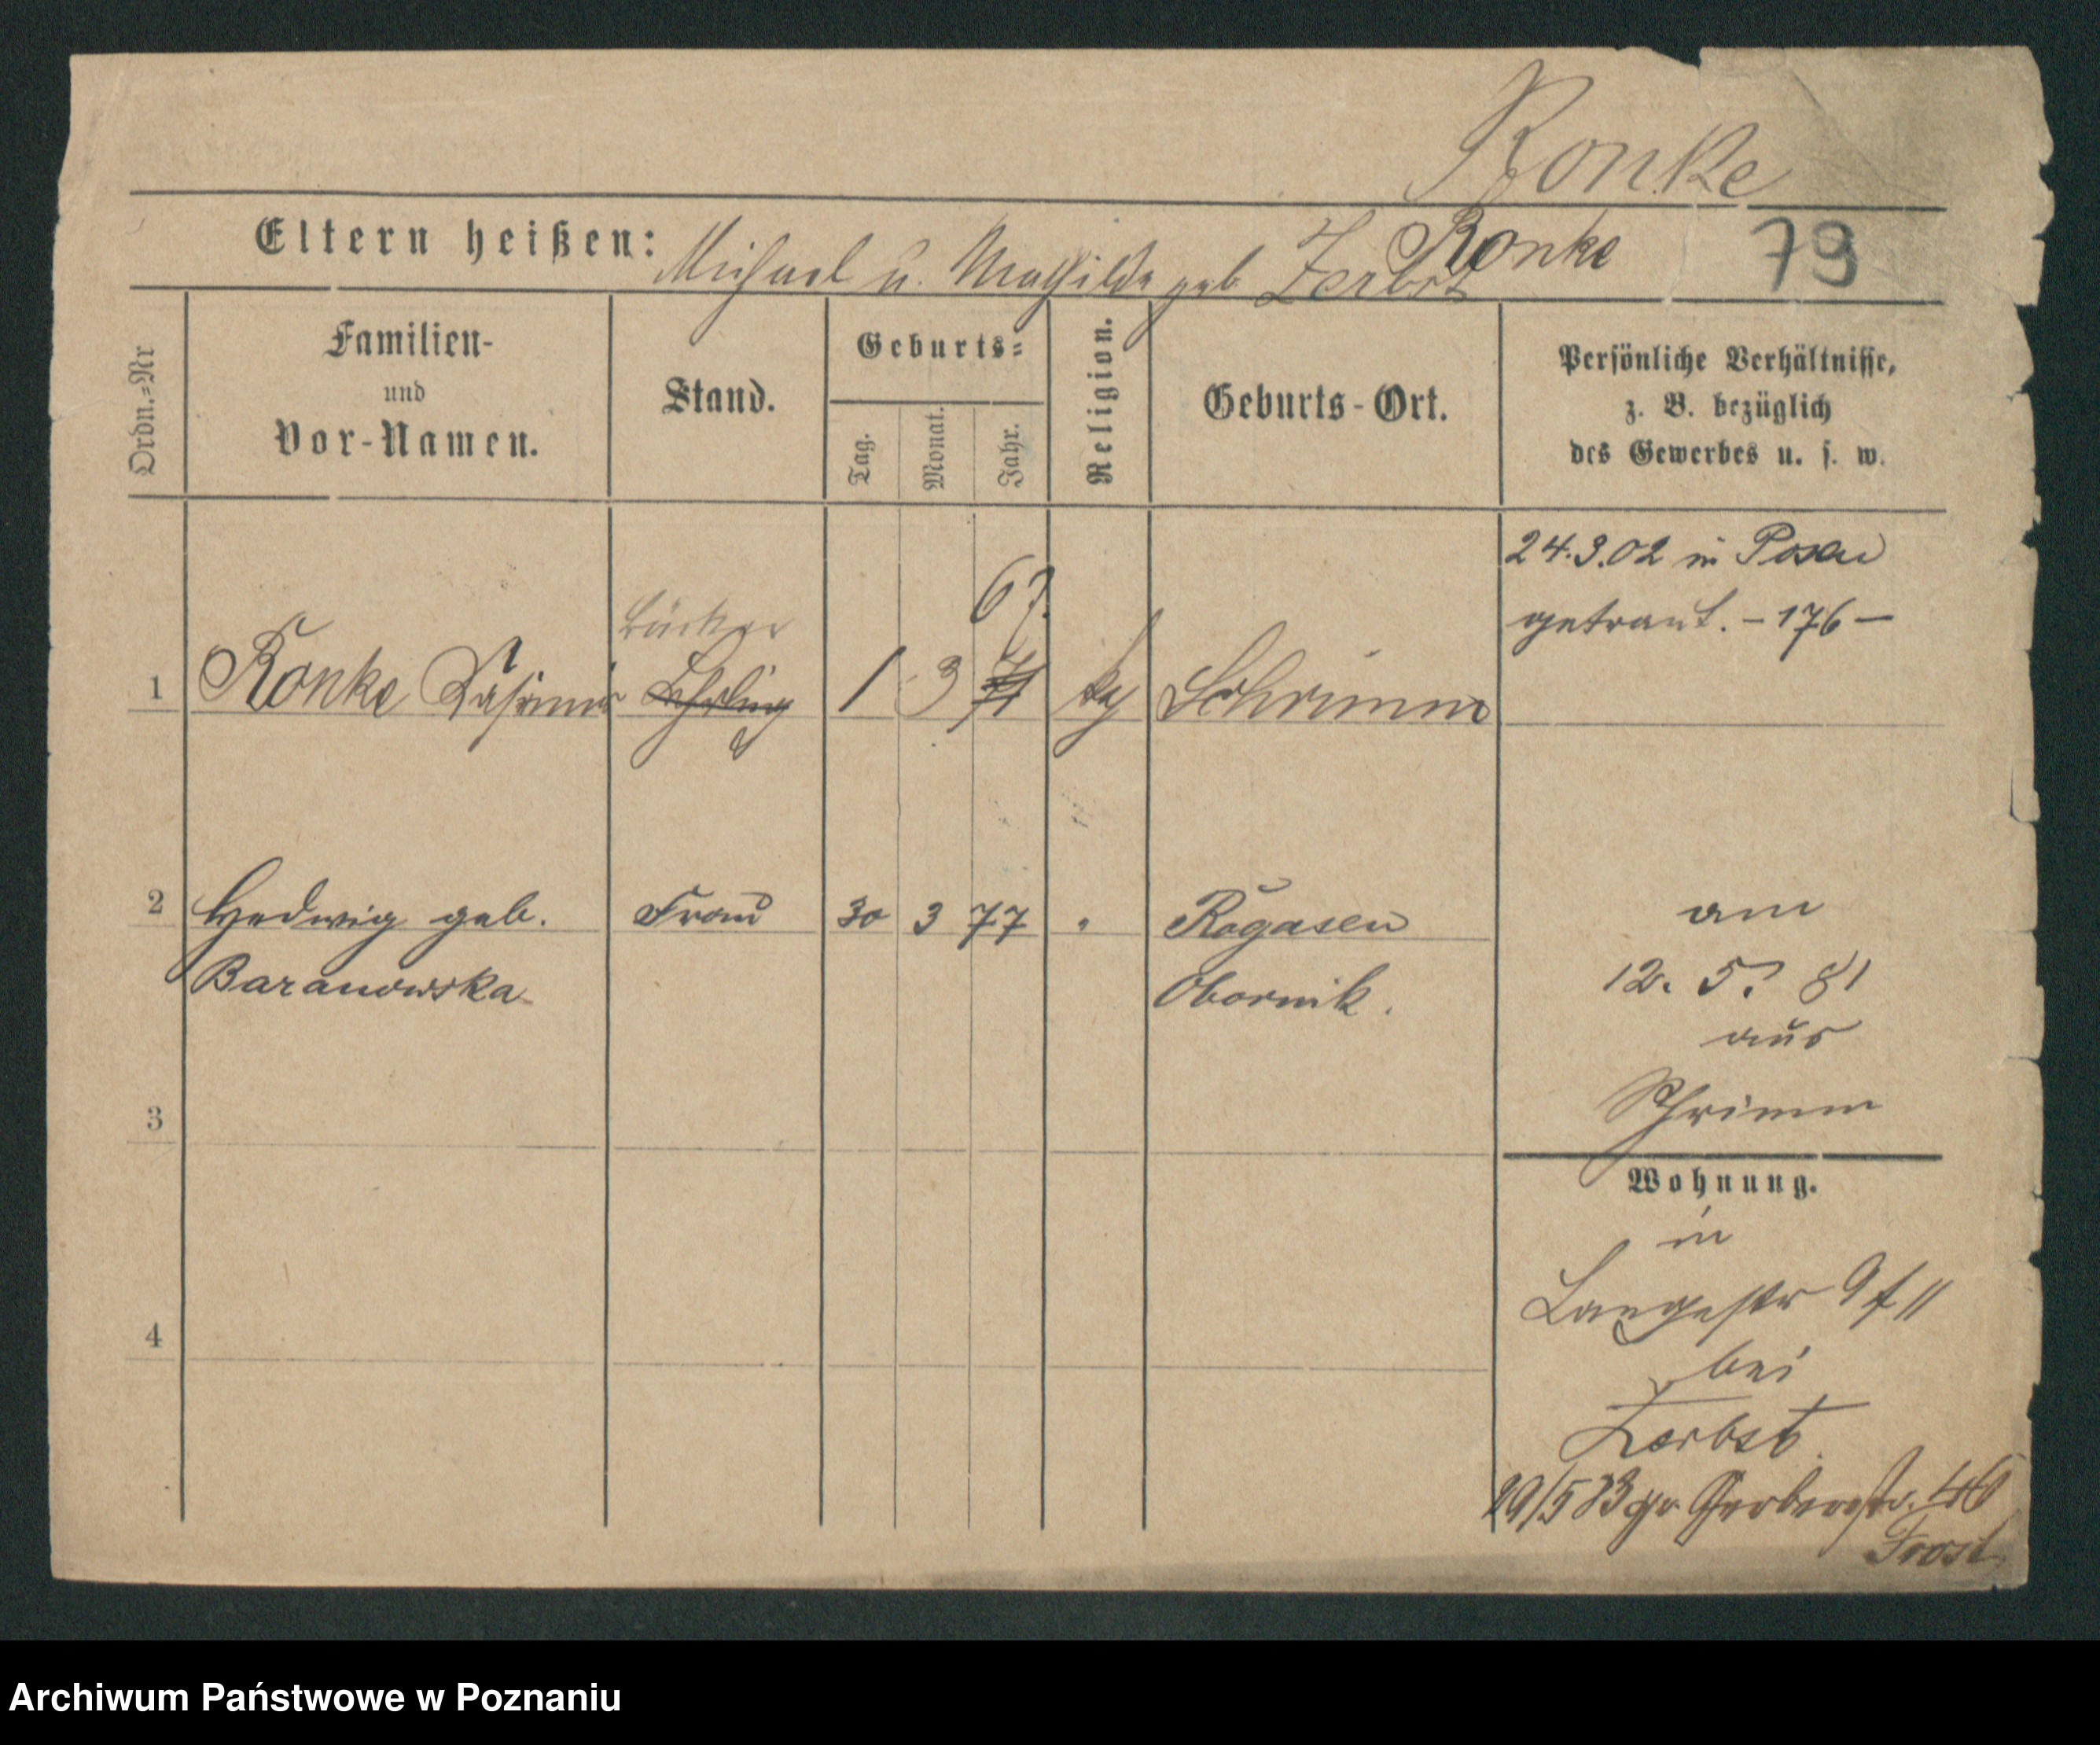 Ronke
Eltern heißen: Michael u. Mathilde geb. Zerbst Ronke 79
Ordn.=Nr
Familien-
und
Vor-Namen.
Stand.
Geburts=
Tag.
Monat.
Jahr.
Religion.
Geburts-Ort.
Persönliche Verhältnisse,
z. B. bezüglich
des Gewerbes u. s. w.
24.3.02 in Posen
getraut. – 176 –
Bäcker 67.
1 Ronke Kasimir Lehrling 1 3 71 kg Schrimm
2 Hedwig geb. Frau 30 3 77 " Rogasen
Baranowska Obornik.
am
12. 5. 81
aus
Schrimm
3
Wohnung.
in
Langestr 9 f II
4
bei
Zerbst
29/5 83 gr. Gerberstr. 46
Frost
Archiwum Państwowe w Poznaniu